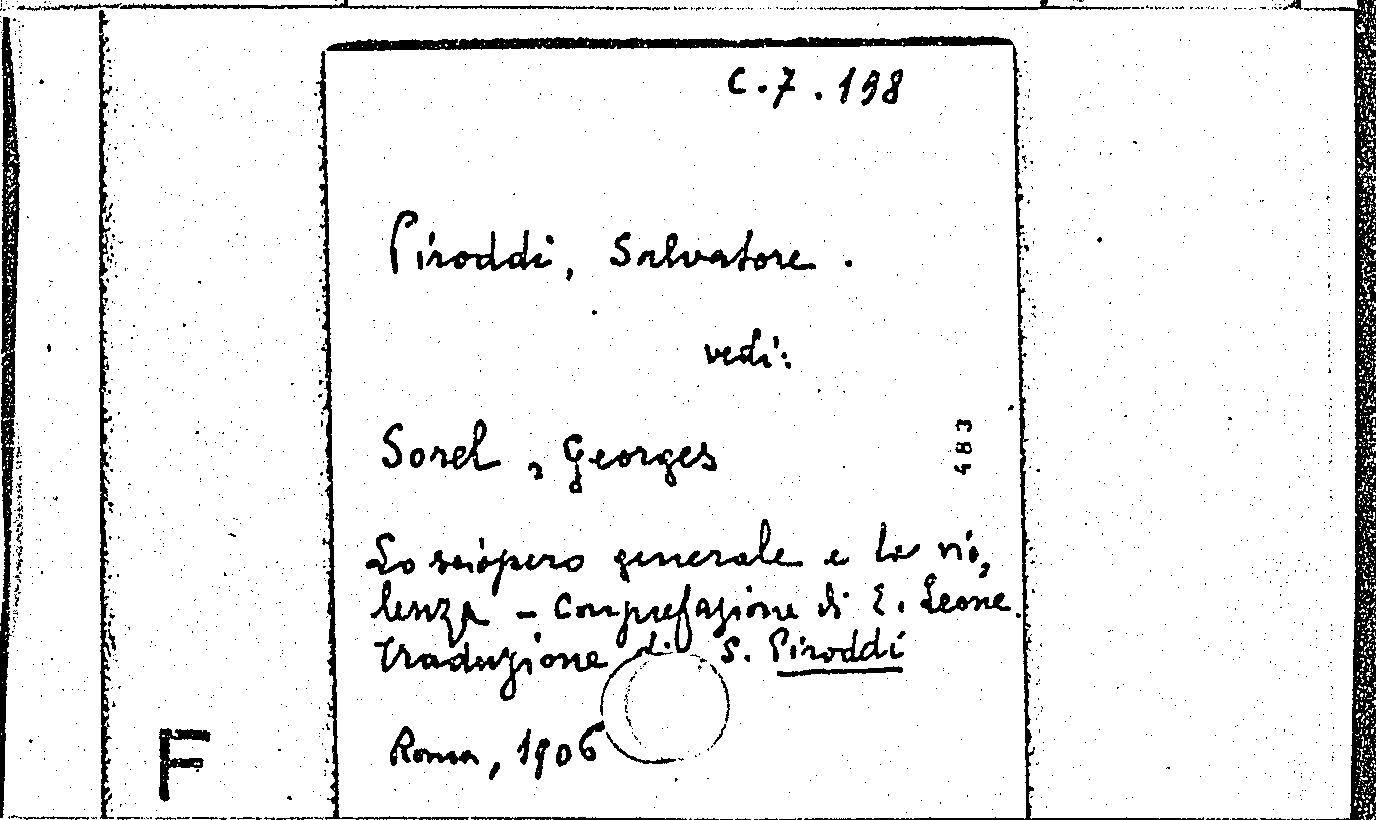 C.7.198
Piroddi, Salvatore.
vedi:
Sorel, Georges
483
Lo sciopero generale e la vio,
lenza - Con prefazione di E. Leone.
Traduzione di S. Piroddi
Roma, 1906
F